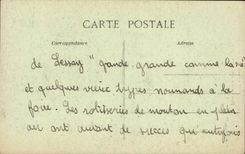 CARTE POSTALE
Correspondance Adresse
de Lessay " grande, grande comme la
et quelques vieux types normands à la
foire. Les rotisseries de mouton en plein
air ont autant de succès qu'autrefois